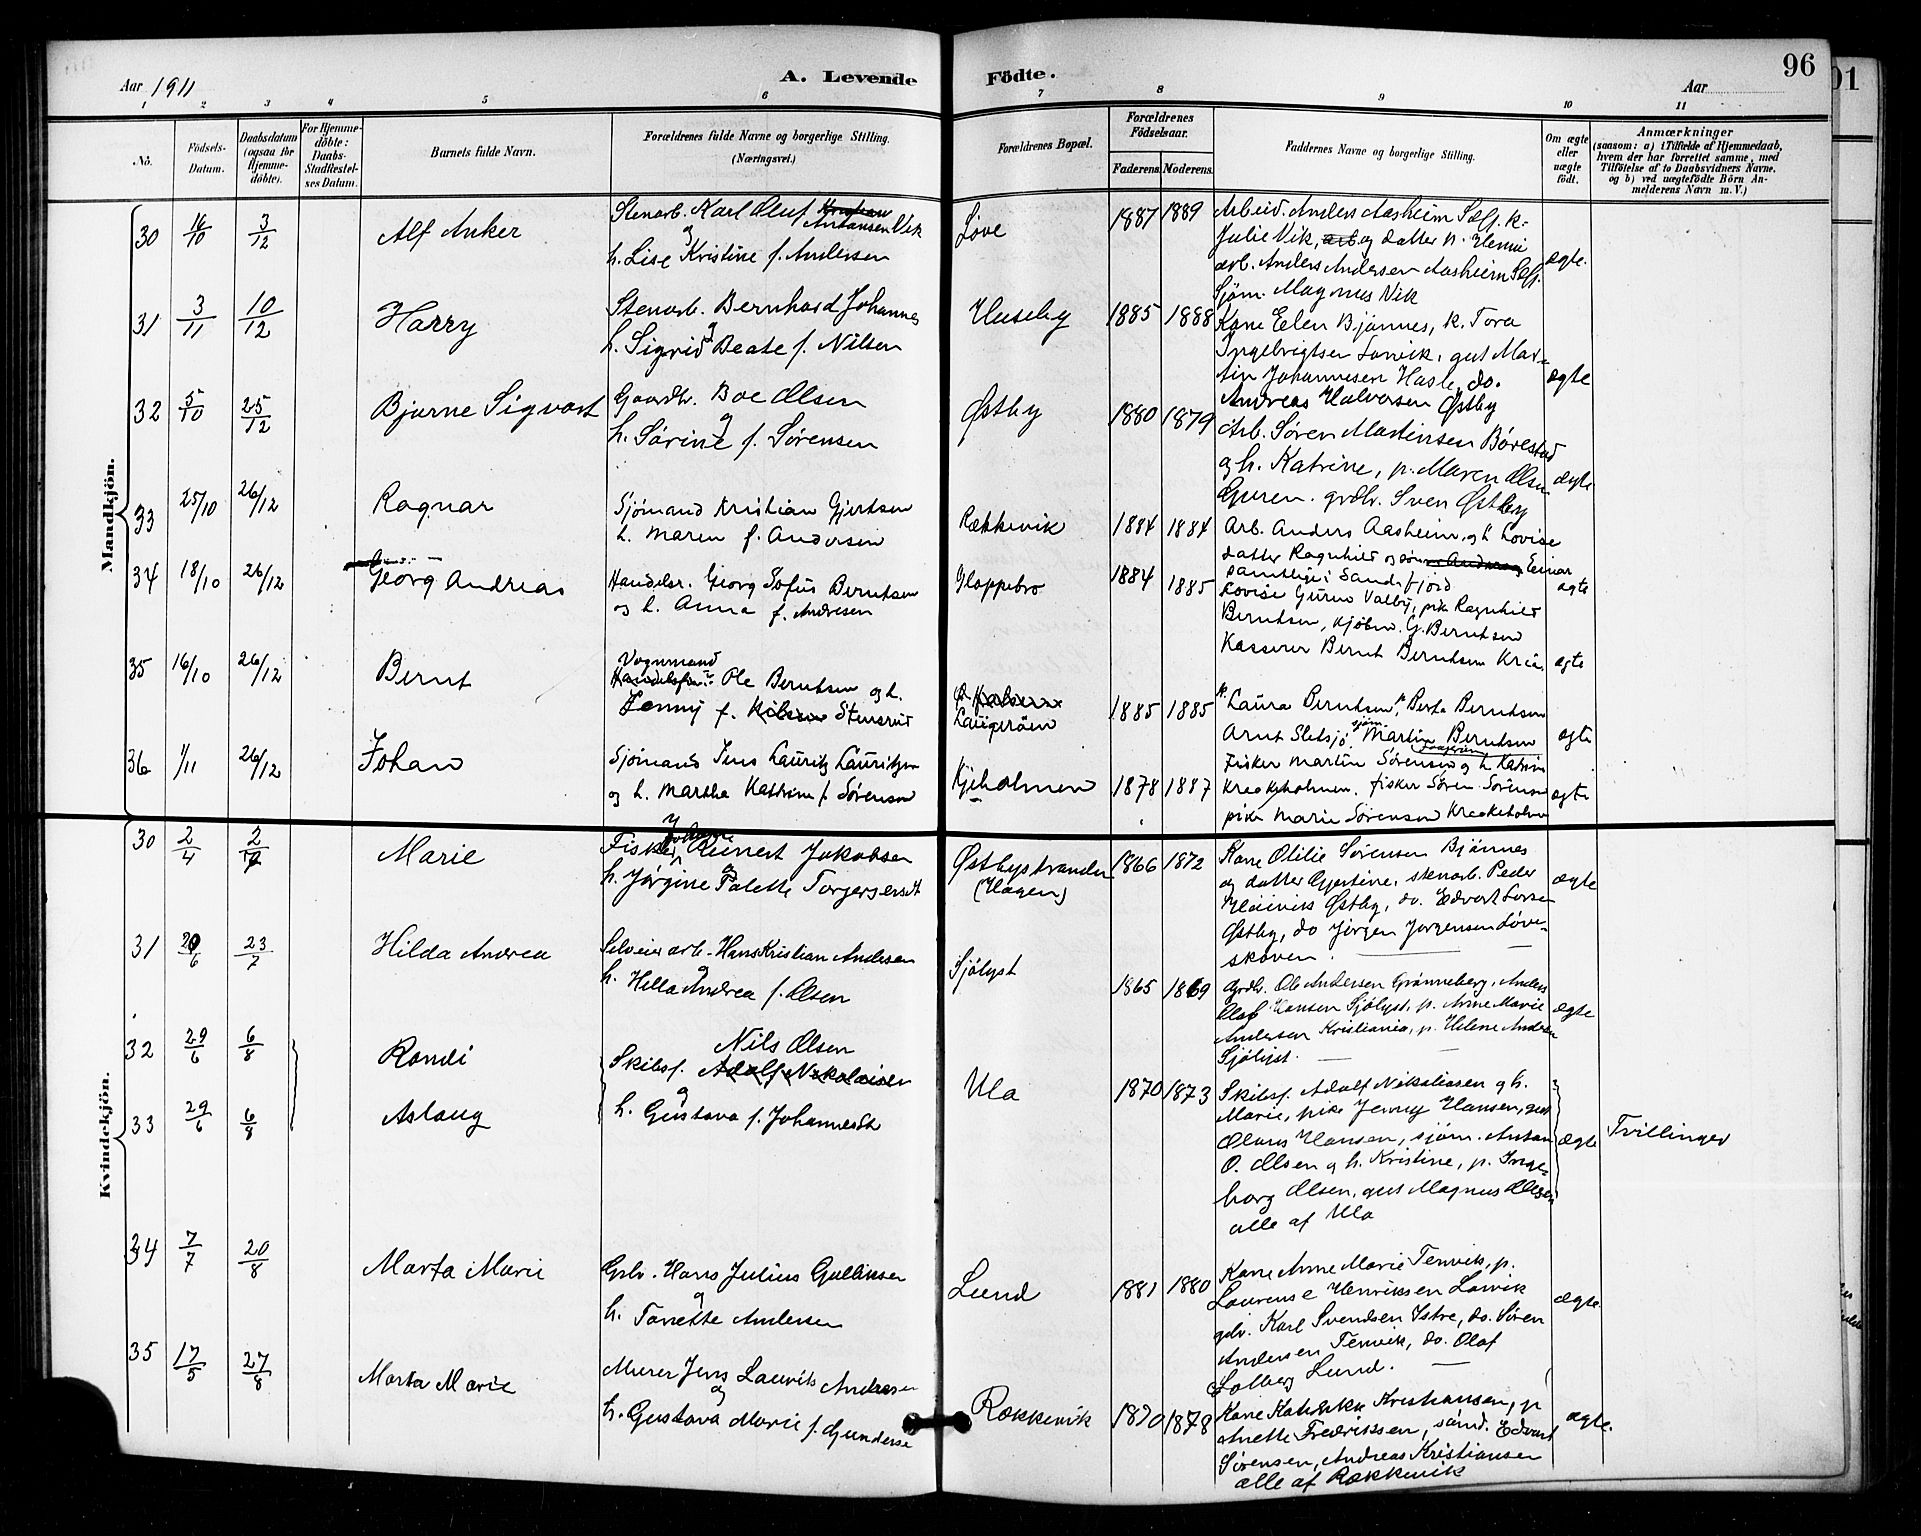 96
01
Aar 1911
A. Levende Födte.
Aar
1 2 3 4 5 6 7 8 9 10 11
No.
Födsels-Datum.
Daabsdatum (ogsaa for Hjemme-döbte).
For Hjemme-döbte: Daabs-Stadfæstel-ses Datum.
Barnets fulde Navn.
Forældrenes fulde Navne og borgerlige Stilling. (Næringsvei.)
Forældrenes Bopæl.
Forældrenes Födselsaar.
Faderens. Moderens.
Faddernes Navne og borgerlige Stilling.
Om ægte eller uægte født.
Anmærkninger
(saasom: a) i Tilfælde af Hjemmedaab, hvem der har forrettet samme, med Tilföielse af to Daabsvidners Navne, og b) ved uægtefödte Börn Anmelderens Navn m. V.)
Mandkjön.
30 16/10 3/12 Alf Anker
Stenarb. Karl Oluf Antonsen Vik
og
h. Lise Kristine f. Andersen
Løve 1887 1889
Arbeid. Anders Aasheim Sefj. k.
Julie Vik, og datter p. Henni
arb. Anders Andersen Aasheim Sefj.
Sjøm. Magnus Vik
ægte.
31 3/11 10/12 Harry
Stenarb. Bernhard Johannes
og
h. Sigrid Beate f. Nilsen
Huseby 1885 1888
Kone Elen Bjønnes, k. Tora
Ingebrigtsen Lorvik, gut Mar-
tin Johannesen Hasle, do.
Andreas Halvorsen Østby
ægte
32 5/10 25/12 Bjarne Sigvart
Gaardbr. Boe Olsen
og
h. Sørine f. Sørensen
Østby 1880 1879
Arb. Søren Martinsen Børestad
og h. Katrine, p. Maren Olsen
Guren. grdbr. Sven Østby
ægte
33 25/10 26/12 Ragnar
Sjømand Kristian Gjertsen
h. Maren f. Andersen
Rækkevik 1884 1884
Arb. Anders Aasheim, og h Lovise
datter Ragnhild og søn Einar
samtlige i Sandefjord
ægte
34 18/10 26/12 Georg Andreas
Handelsr. Georg Sofus Berntsen
og h. Anna f. Andresen
Gloppebro 1884 1885
Lovise Guren Valby, pike Ragnhild
Berntsen, kjøbm. G. Berntsen
Kasserer Bernt Berntsen Kr.ia
ægte
35 16/10 26/12 Bernt
Vognmand
Ole Berntsen og h.
Jenny f. Stensrud
Laugerøen 1885 1885
k. Laura Berntsen, p. Berta Berntsen
Arnt Sletsjø, sjøm. Martin Berntsen
ægte
36 1/11 26/12 Johan
Sjømand Jens Lauritz Lauritzen
og h. Martha Kathrine f. Sørensen
Kjeholmen 1878 1887
Fisker Martin Sørensen og h. Katrine
Kraakeholmen. fisker Søren Sørensen
pike Marie Sørensen Kraakeholmen
ægte
Kvindekjön.
30 2/4 2/7 Marie
Fisker Reinert Jakobsen
og
h. Jørgine Palette Torgersensdt
Østbystranden (Hagen) 1866 1872
Kone Otilie Sørensen Bjønnes
og datter Gjertine, stenarb. Peder
Østby, do. Edvart Larsen
Østby, do Jørgen Jørgensen Løve-
skoven.
ægte
31 29/6 23/7 Hilda Andrea
Selveier arb. Hans Kristian Andersen
og
h. Hella Andrea f. Olsen
Sjølyst 1865 1869
Grdbr. Ole Andersen Grønneberg, Anders
Olaf Hansen Sjølyst, p. Anne Marie
Andersen Kristiania, p. Helene Andersen
Sjølyst.
ægte
32 29/6 6/8 Randi
33 29/6 6/8 Aslaug
Nils Olsen
Skibsf. Adolf Nikolaisen
og
h. Gustava f. Johannesdt
Ula 1870 1873
Skibsf. Adolf Nikolaisen og h.
Marie, pike Jenny Hansen, gut
Olaus Hansen, sjøm. Anton
O. Olsen og h. Kristine, p. Inge-
borg Olsen, gut Magnus Olsen
alle af Ula
ægte
Tvillinger
34 7/7 20/8 Marta Marie
Gbr. Hans Julius Gulliksen
og
h. Tanette Andersen
Lund 1881 1880
Kone Anne Marie Tenvik, p.
Laurense Henriksen Lorvik
gbr. Karl Svendsen Istre, do. Søren
Andersen Tenvik, do. Olaf
Solberg Lund.
ægte.
35 17/5 27/8 Marta Marie
Murer Jens Laurits Andresen
og
h. Gustava Marie f. Gundersen
Rækkevik 1870 1878
Kone Kristiansen, p
Anette Fredriksen, sømd. Edvart
Sørensen, Andreas Kristiansen
alle af Rækkevik
ægte.